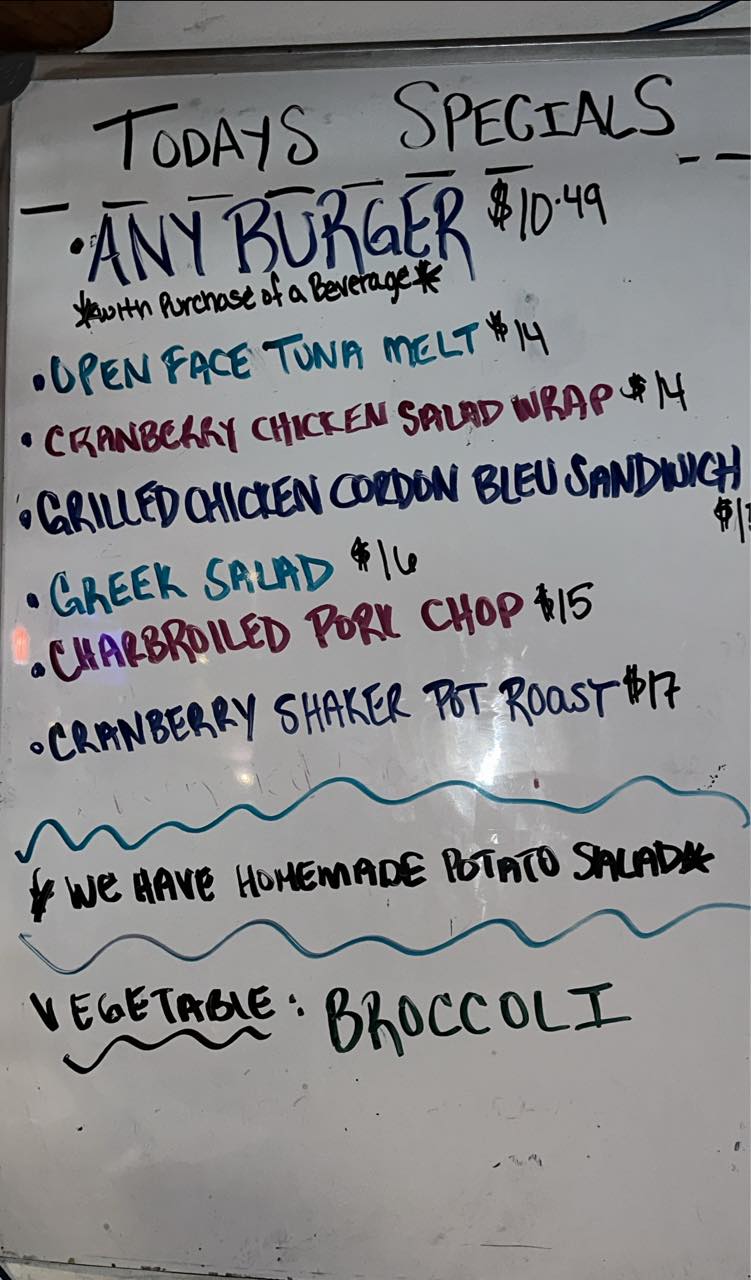 TODAYS SPECIALS
• ANY BURGER $10.49
*with Purchase of a Beverage*
• OPEN FACE TUNA MELT $14
• CRANBERRY CHICKEN SALAD WRAP $14
• GRILLED CHICKEN CORDON BLEU SANDWICH
• GREEK SALAD $16
• CHARBROILED PORK CHOP $15
• CRANBERRY SHAKER POT ROAST $17
* WE HAVE HOMEMADE POTATO SALAD *
VEGETABLE: BROCCOLI